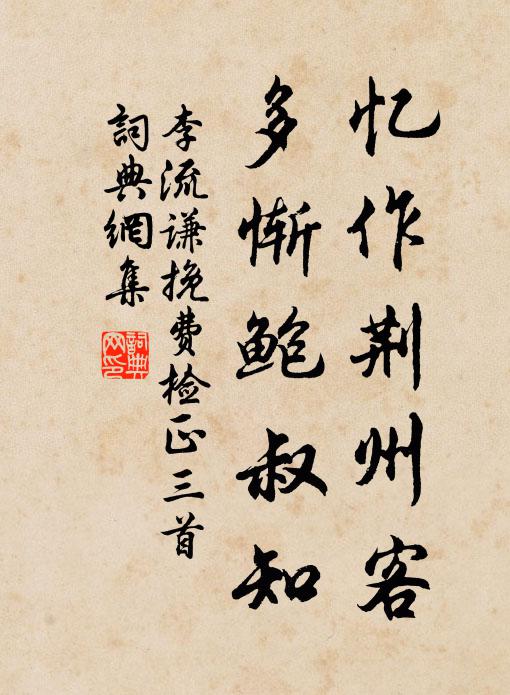 忆作荆州客
多惭鲍叔知
李流谦挽费检正三首
詞典網集
詞典网印